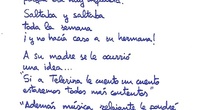 Saltaba y saltaba
toda la semana
¡y no hacía caso a su hermana!
A su madre se le ocurrió
una idea...
"Si a Telerina le cuento un cuento
estaremos todos más contentos"
"Además música